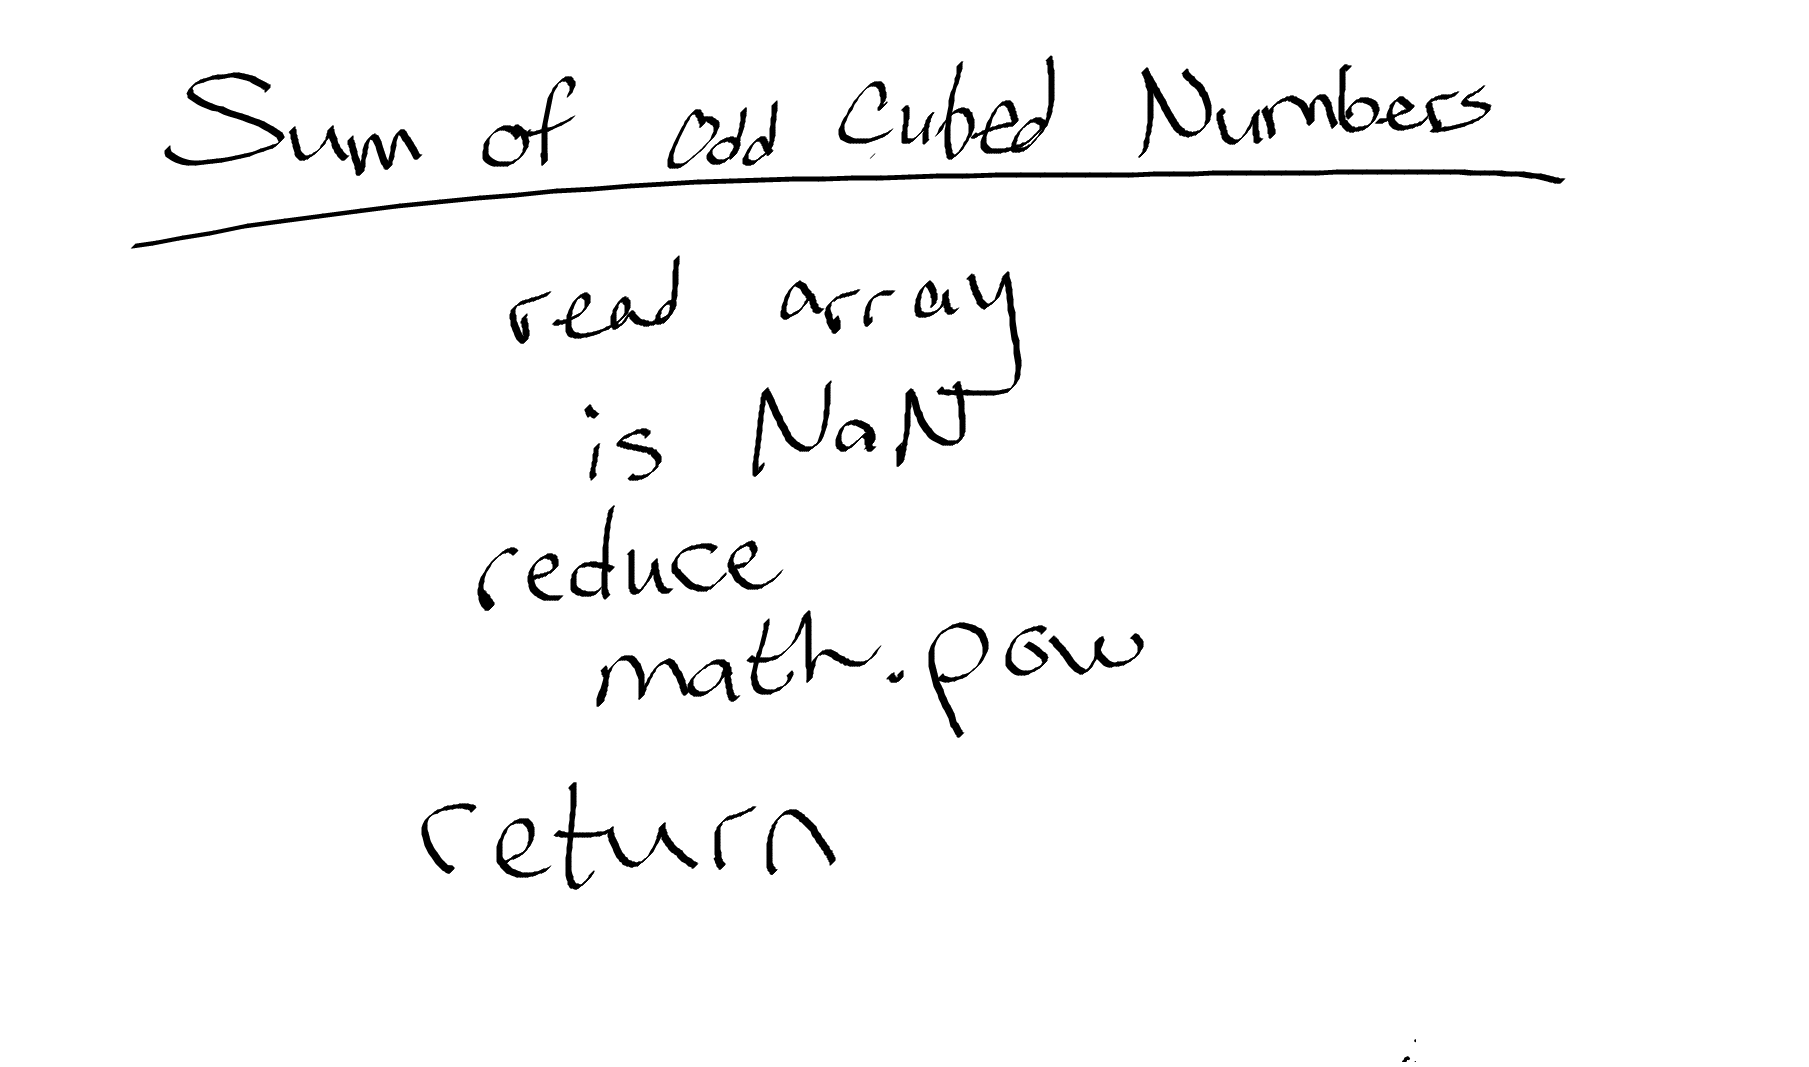 Sum of Odd Cubed Numbers
read array
is NaN
reduce
math.pow
return